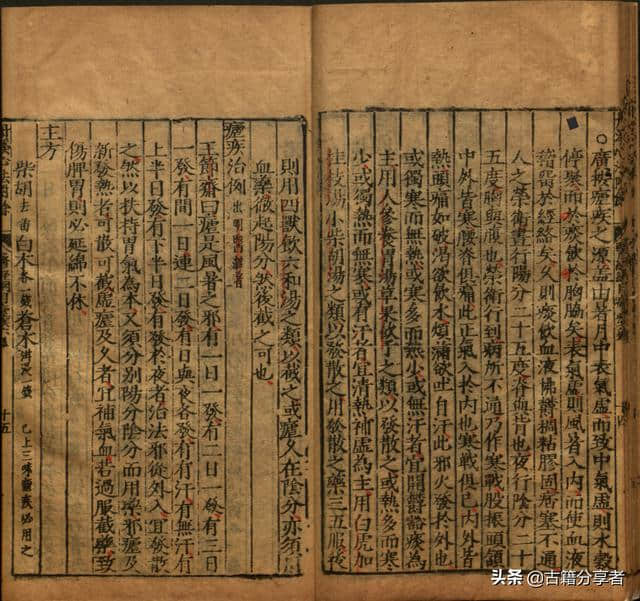 廣按瘧疾之源蓋由暑月中表氣虛而致中氣虛則水穀
停聚而於痰飲於胸脇矣表氣虛則風暑入內而使血液
稽留於經絡矣久則痰飲血液怫鬱稠粘膠固痞塞不通
人之榮衛晝行陽分二十五度脊與背也夜行陰分二十
五度胸與腹也榮衛行到病所不通乃作寒戰股振頭頷
中外皆寒腰脊俱痛此正氣入於內也寒戰俱已內外皆
熱頭痛如破渴欲飲水煩滿欲吐自汗此邪火發於外也
或獨寒而無熱或熱少而寒多或無汗者宜開鬱豁痰為
主用人參養胃湯草果飲子之類以發散之或熱多而寒
少或獨熱而無寒或有汗者宜清熱補虛為主用白虎加
桂枝湯小柴胡湯之類以發散之用發散之藥三五服後
則用四獸飲六和湯之類以截之或瘧久在陰分亦須用
血藥徹起陽分然後截之可也
瘧疾治例 出明醫雜著
王節齋曰瘧是風暑之邪有一日一發有二日一發有三日
一發有間一日連二日發有日與夜各發有有汗有無汗有
上半日發有下半日發有發於夜者治法邪從外入宜發散
之然以扶持胃氣為本又須分別陽分陰分而用藥邪瘧及
新發熱者可散可截虛瘧及久者宜補氣血若過服截藥致
傷脾胃則必延綿不休
主方
柴胡去苗 白朮各一錢 蒼朮泔浸一錢 已上三味瘧疾必用之
十五
头条 @古籍分享者